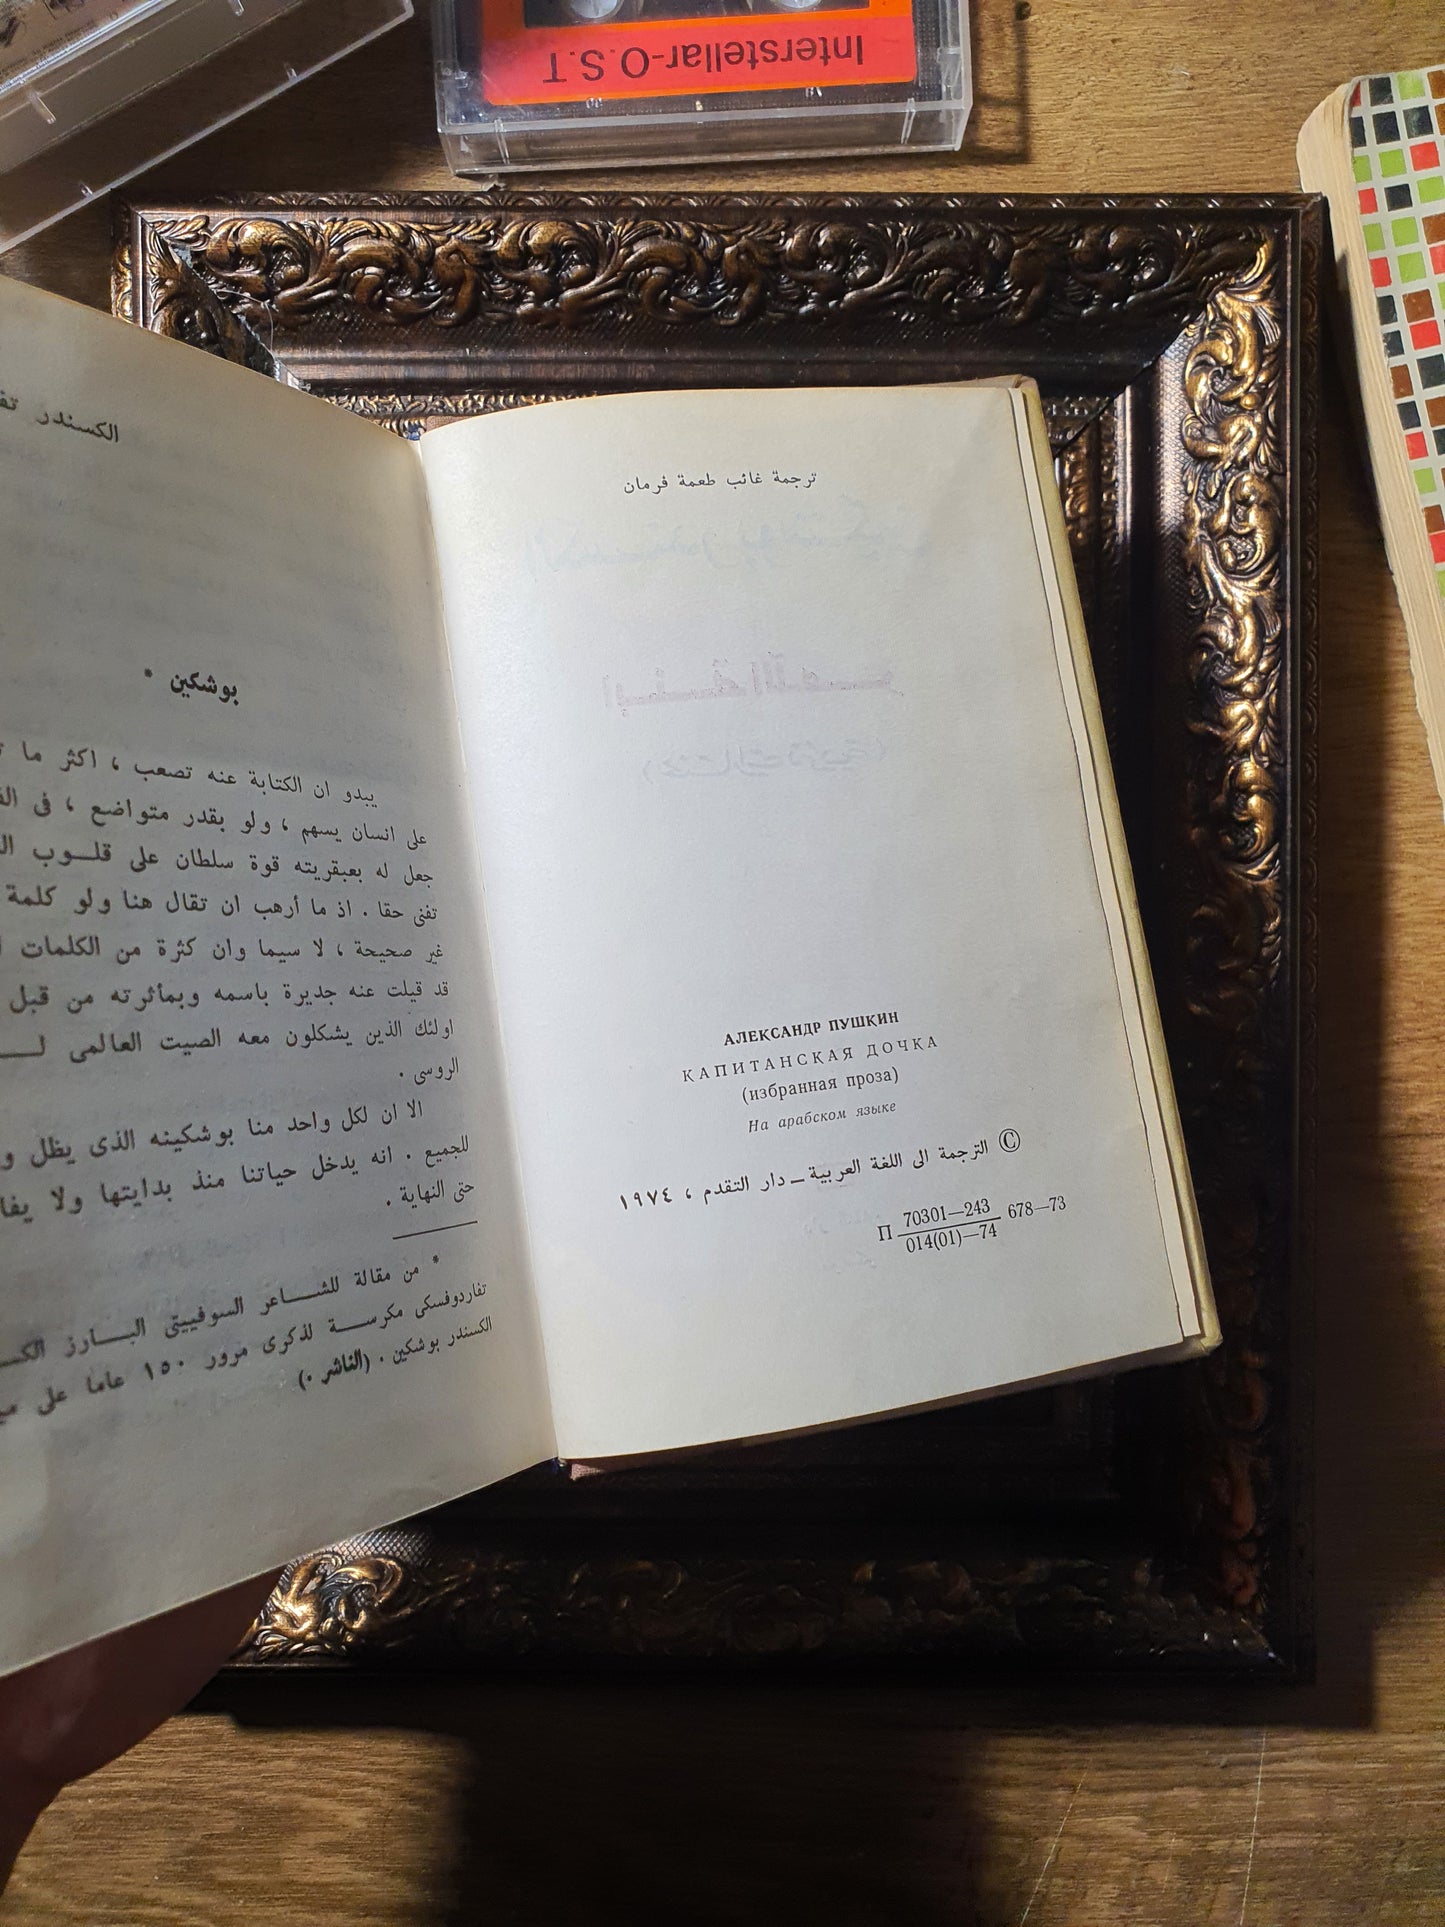 Interstellar-O.S.T
ترجمة غائب طعمة فرمان
АЛЕКСАНДР ПУШКИН
КАПИТАНСКАЯ ДОЧКА
(избранная проза)
На арабском языке
© الترجمة الى اللغة العربية – دار التقدم ، ١٩٧٤
П 70301—243 678—73
014(01)—74
الكسندر
بوشكين *
يبدو ان الكتابة عنه تصعب ، اكثر ما
على انسان يسهم ، ولو بقدر متواضع ، فى
جعل له بعبقريته قوة سلطان على قلوب
تفنى حقا . اذ ما أرهب ان تقال هنا ولو كلمة
غير صحيحة ، لا سيما وان كثرة من الكلمات
قد قيلت عنه جديرة باسمه وبمأثرته من قبل
اولئك الذين يشكلون معه الصيت العالمى
الروسى .
الا ان لكل واحد منا بوشكينه الذى يظل
للجميع . انه يدخل حياتنا منذ بدايتها ولا
حتى النهاية .
* من مقالة للشاعر السوفييتى البارز
تفاردوفسكى مكرسة لذكرى مرور ١٥٠ عاما على
الكسندر بوشكين . (الناشر .)